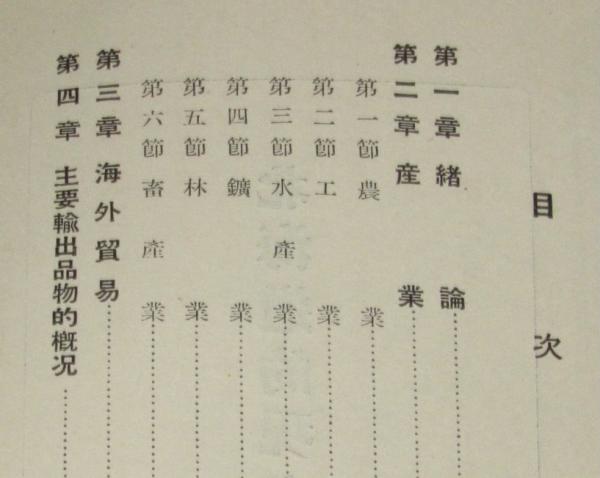 目次
第一章 緒論
第二章 産業
第一節 農業
第二節 工業
第三節 水產業
第四節 鑛業
第五節 林業
第六節 畜產業
第三章 海外貿易
第四章 主要輸出品物的概况